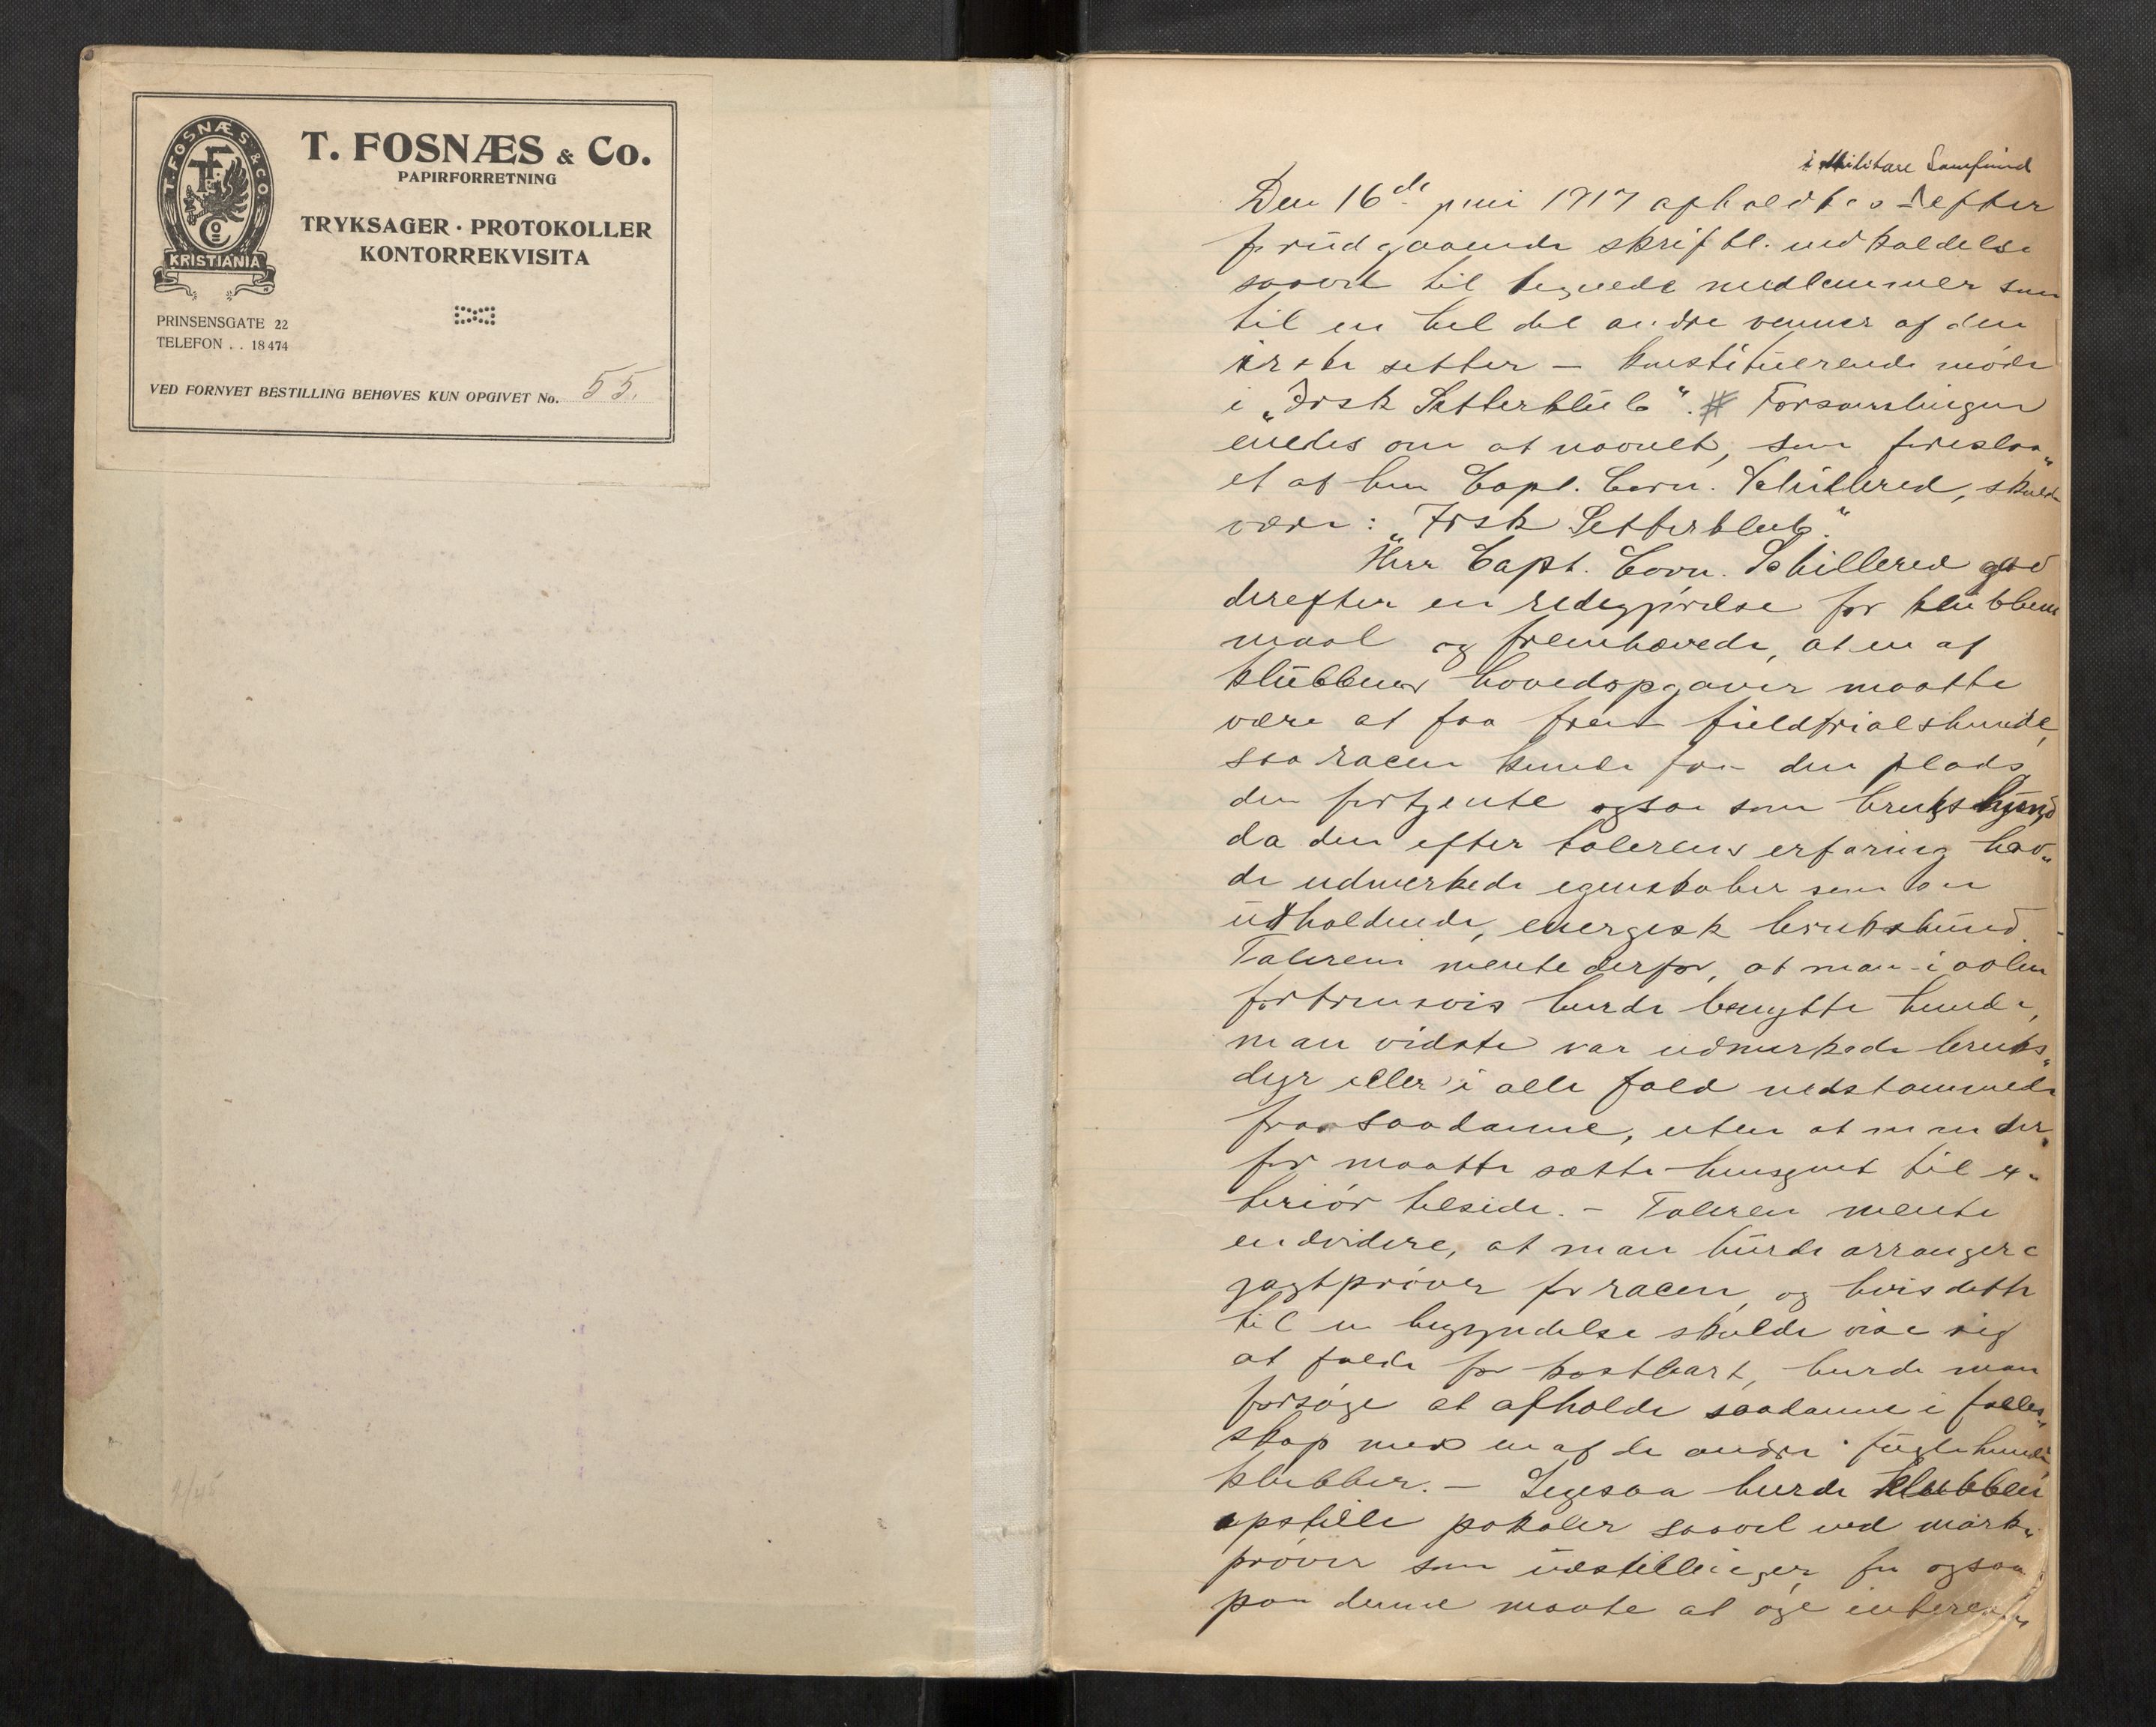 T. FOSNÆS & CO
KRISTIANIA
T. FOSNÆS & Co.
PAPIRFORRETNING
TRYKSAGER · PROTOKOLLER
KONTORREKVISITA
PRINSENSGATE 22
TELEFON . . 18474
VED FORNYET BESTILLING BEHØVES KUN OPGIVET No. 55.
i Militære Samfund
Den 16de juni 1917 afholdtes efter
forudgaaende skriftl. indkaldelse
saavel til tegnede medlemmer som
til en hel del andre venner af den
irske setter – konstituerende møde
i „Irsk Setterklub". # Forsamlingen
enedes om at navnet, som foreslaa„
et af hr. Capt. Corn. Schilbred, skulde
være: „Irsk Setterklub."
Herr Capt. Corn. Schilbred gav
derefter en redegjørelse for klubbens
maal og fremhævede, at en af
klubbens hovedopgaver maatte
være at faa frem fieldtrialshunde,
saa racen kunde faa den plads
den fortjente ogsaa som brukshund
da den efter talerens erfaring hav„
de udmerkede egenskaber som en
udholdende, energisk brukshund.
Taleren mente derfor, at man i avlen
fortrinsvis burde benytte hunde,
man vidste var udmerkede bruks„
dyr eller i alle fald nedstammede
fra saadanne, uten at man der„
for maatte sætte hensynet til ex„
teriør tilside. – Taleren mente
endvidere, at man burde arrangere
jagtprøver for racen, og hvis dette
til en begyndelse skulde vise sig
at falde for kostbart, burde man
forsøge at afholde saadanne i felles„
skap med en af de andre fuglehund„
klubber. – Ligesaa burde klubben
opstille pokaler saavel ved mark„
prøver som udstillinger, for ogsaa
paa denne maate at øge interes„
4/45